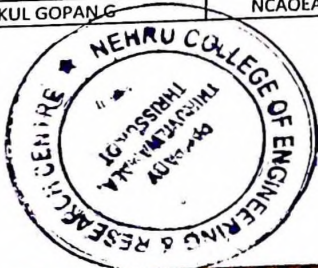 KUL GOPAN G
NCAOEA
NEHRU COLLEGE OF ENGINEERING & RESEARCH CENTRE
PAMPADY
THIRUVILWAMALA,
THRISSUR DT